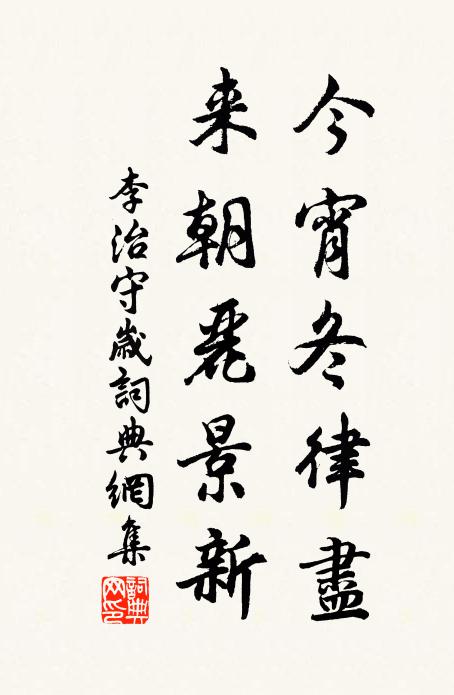 今宵冬律盡
来朝麗景新
李治守歲詞典網集
詞典網印